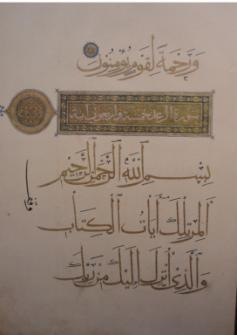 وَرَحْمَةً لِقَوْمٍ يُؤْمِنُونَ
سورة الرعد خمسة واربعون اية
بِسْمِ اللَّهِ الرَّحْمَنِ الرَّحِيمِ
الٓمٓر تِلْكَ آيَاتُ الْكِتَابِ
وَالَّذِي أُنْزِلَ إِلَيْكَ مِنْ رَبِّكَ